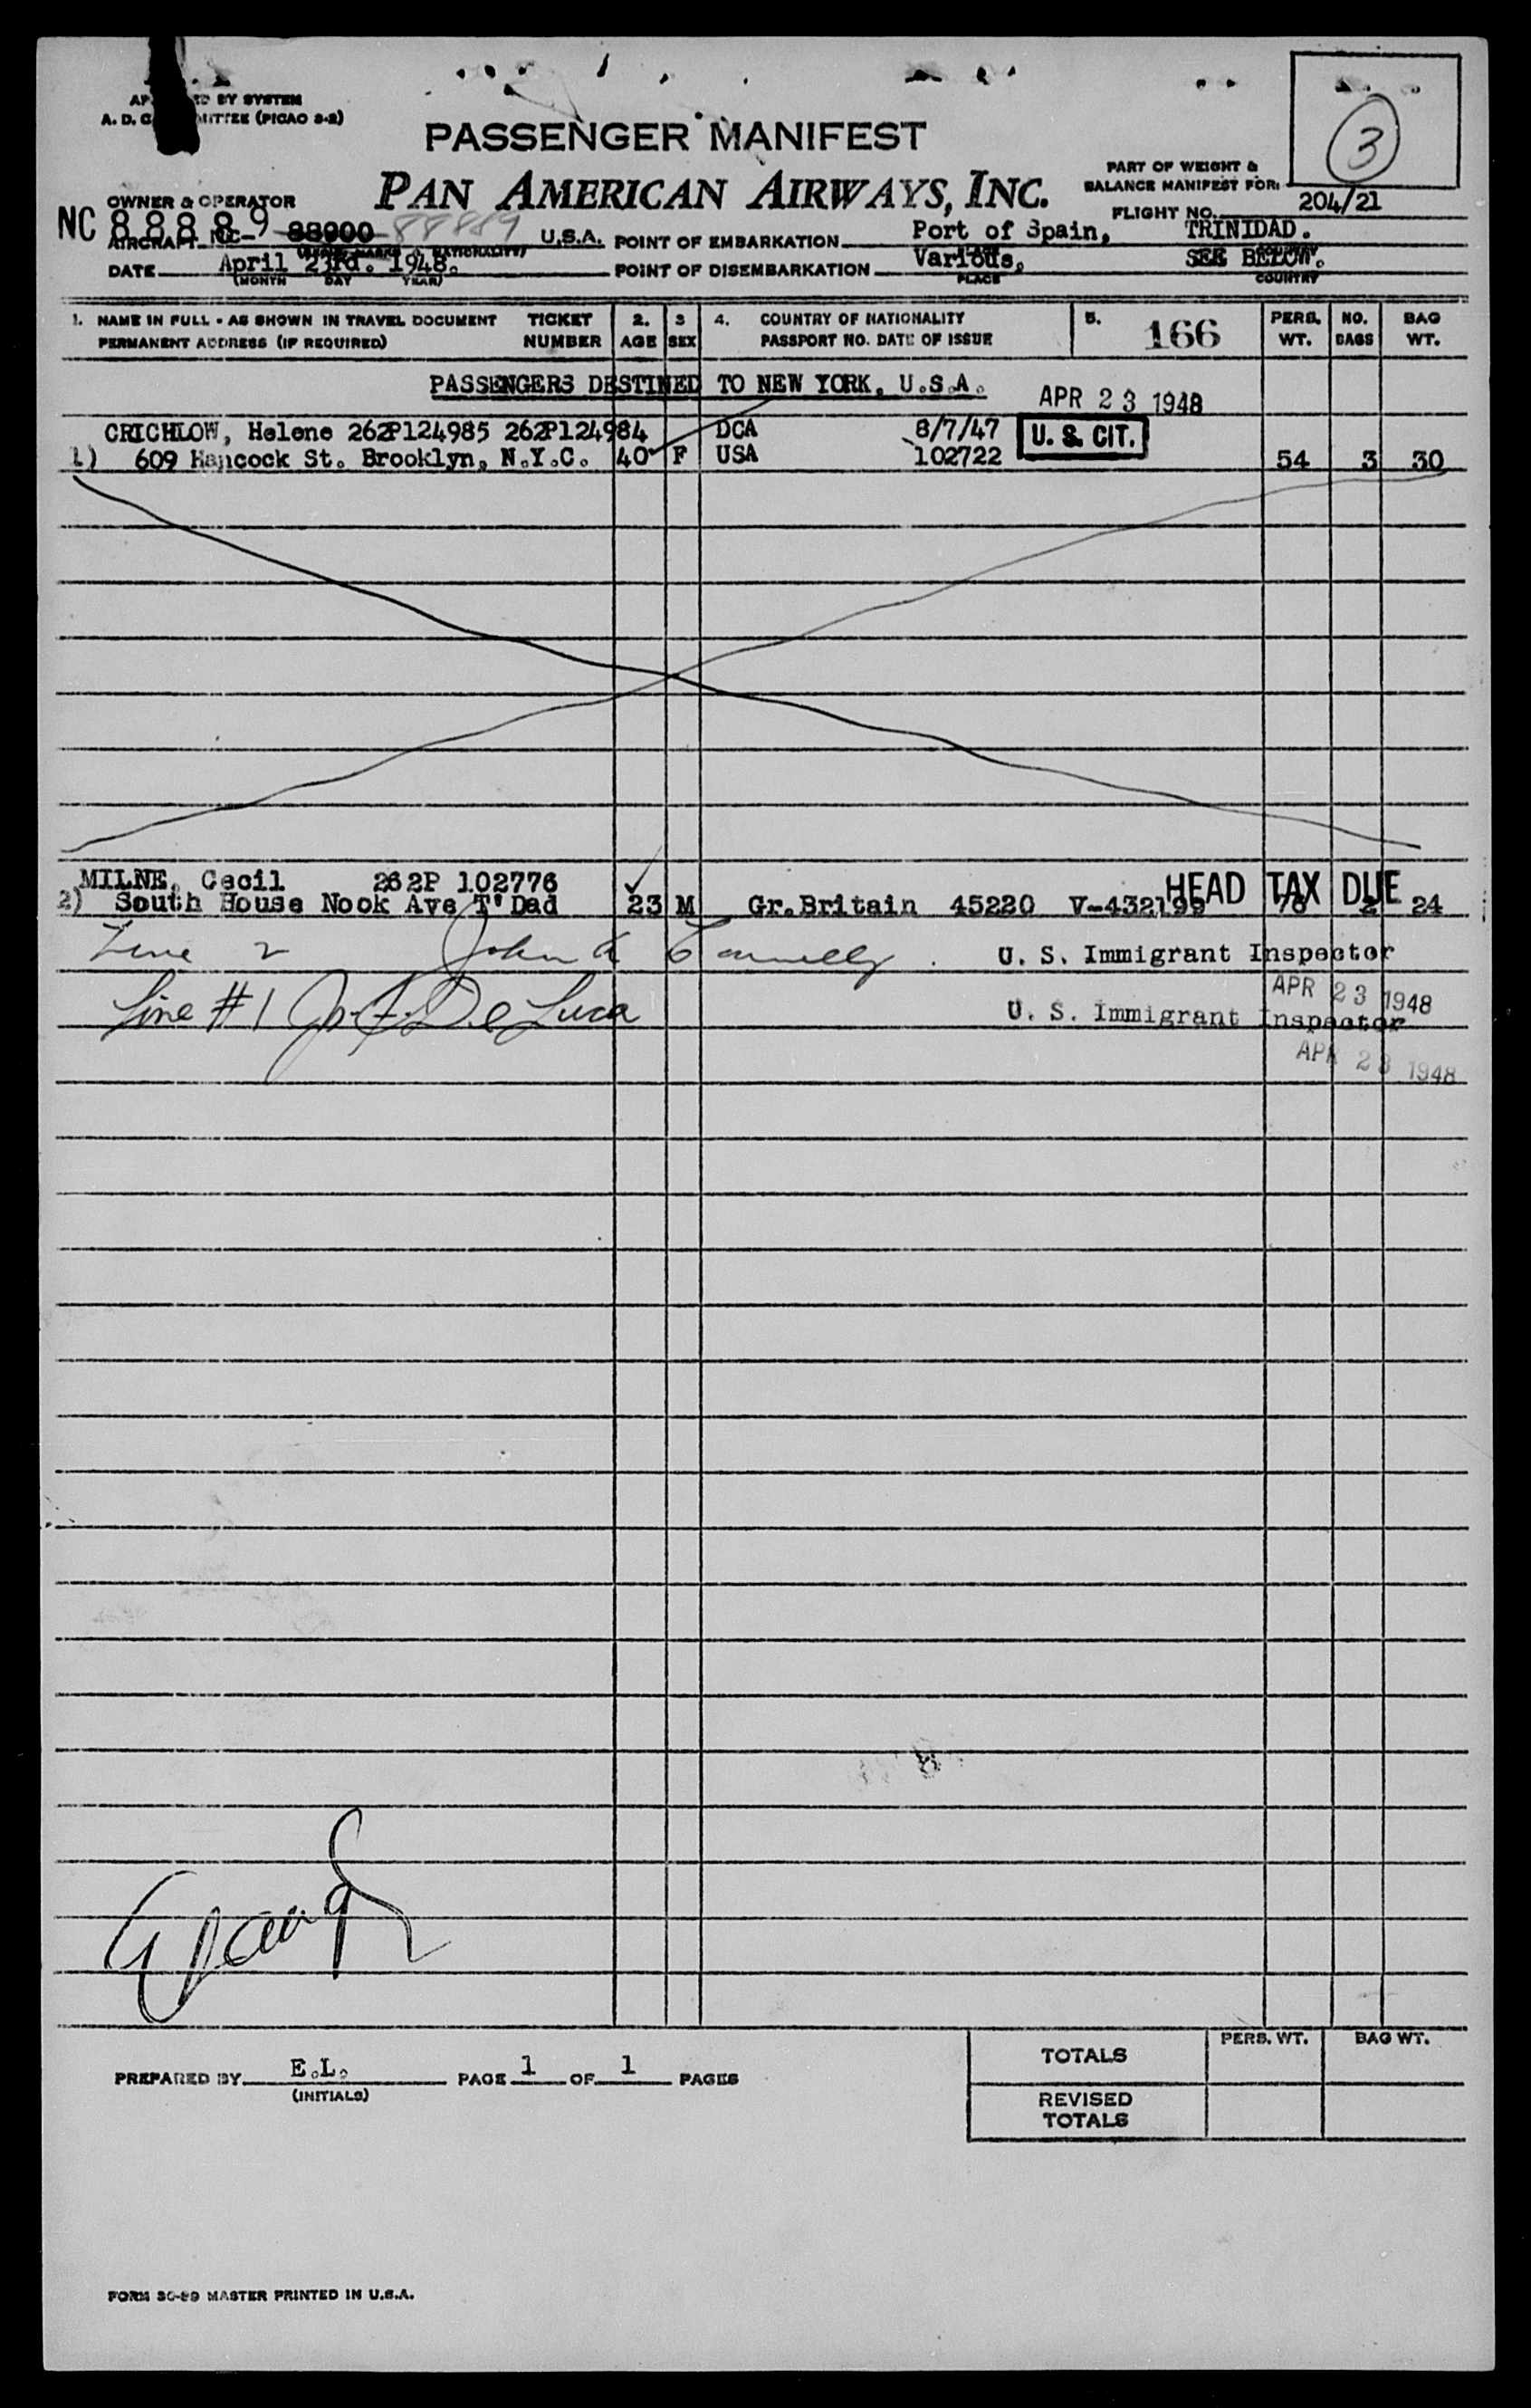 BY SYSTEM
A. D. C. (PICAO 8-2)
3
PASSENGER MANIFEST
PAN AMERICAN AIRWAYS, INC.
PART OF WEIGHT &
BALANCE MANIFEST FOR:
FLIGHT NO. 204/21
OWNER & OPERATOR
NC 88889
AIRCRAFT NC- 88900 88889 U.S.A. POINT OF EMBARKATION Port of Spain, TRINIDAD.
(NATIONALITY)
DATE April 23rd. 1948. POINT OF DISEMBARKATION Various, SEE BELOW.
(MONTH DAY YEAR) PLACE COUNTRY
1. NAME IN FULL - AS SHOWN IN TRAVEL DOCUMENT TICKET 2. 3 4. COUNTRY OF NATIONALITY 5. 166 PERS. NO. BAG
PERMANENT ADDRESS (IF REQUIRED) NUMBER AGE SEX PASSPORT NO. DATE OF ISSUE WT. BAGS WT.
PASSENGERS DESTINED TO NEW YORK, U.S.A. APR 23 1948
CRICHLOW, Helene 262P124985 262P124984 DCA 8/7/47 U. S. CIT.
1) 609 Hancock St. Brooklyn, N.Y.C. 40 F USA 102722 54 3 30
MILNE, Cecil 262P 102776 HEAD TAX DUE
2) South House Nook Ave T'Dad 23 M Gr.Britain 45220 V-432199 2 24
Line 2 John U. S. Immigrant Inspector
APR 23 1948
Line #1 De Luca U. S. Immigrant Inspector
APR 23 1948
PREPARED BY E.L. PAGE 1 OF 1 PAGES
(INITIALS)
PERS. WT. BAG WT.
TOTALS
REVISED
TOTALS
FORM MASTER PRINTED IN U.S.A.